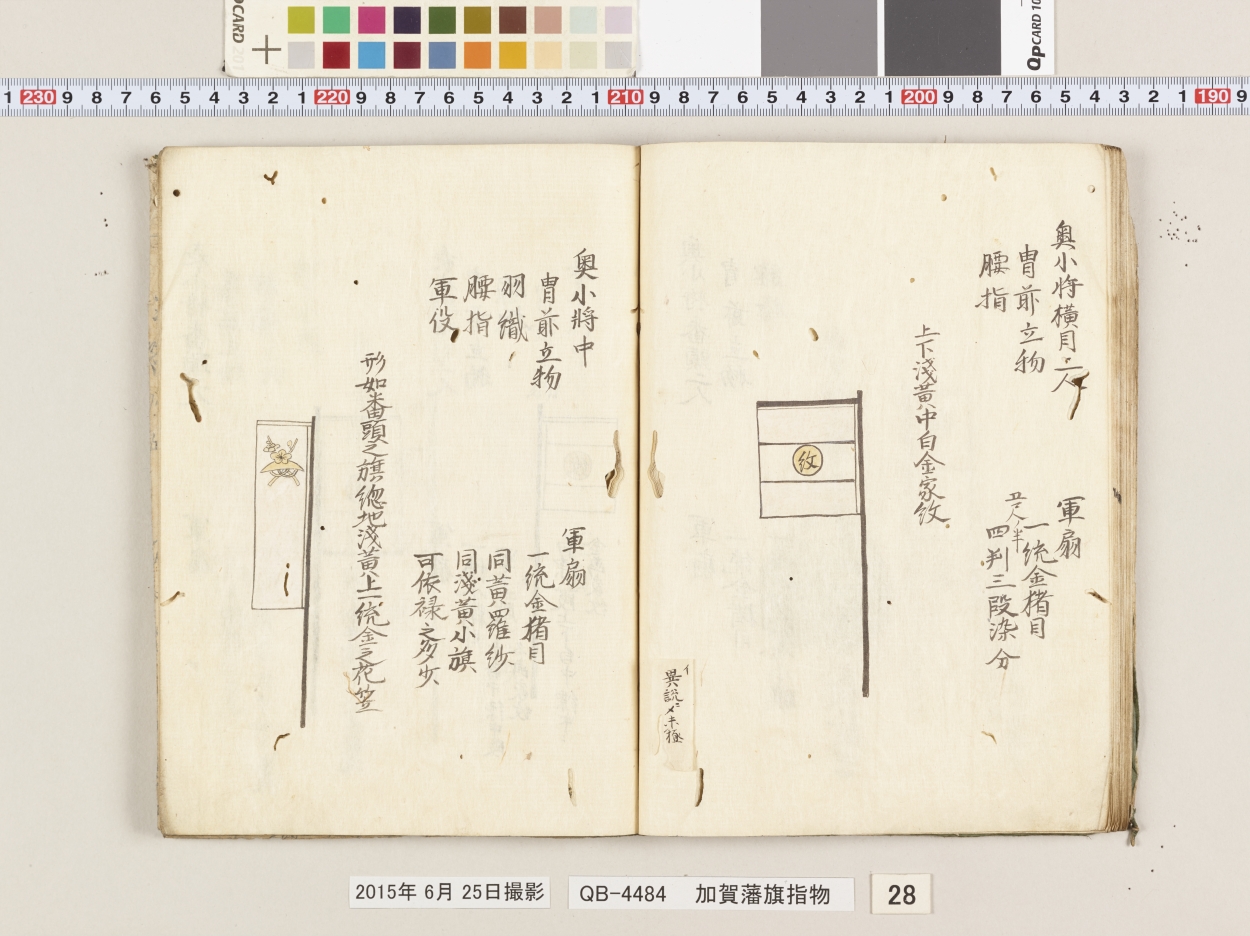 奥小将横目二人
冑前立物
腰指
軍扇
一統金猪目
五尺ノ半
四判三段染分
上下浅黄中白金家紋
紋
イ
異説〆未極
奥小将中
冑前立物
羽織
腰指
軍役
軍扇
一統金猪目
同黄羅紗
同浅黄小旗
可依禄之多少
形如番頭之旗總地浅黄上一統金之花笠
2015年 6月 25日撮影
QB-4484 加賀藩旗指物
28
QPCARD 201
QPCARD 10
1 230 9 8 7 6 5 4 3 2 1 220 9 8 7 6 5 4 3 2 1 210 9 8 7 6 5 4 3 2 1 200 9 8 7 6 5 4 3 2 1 190 9